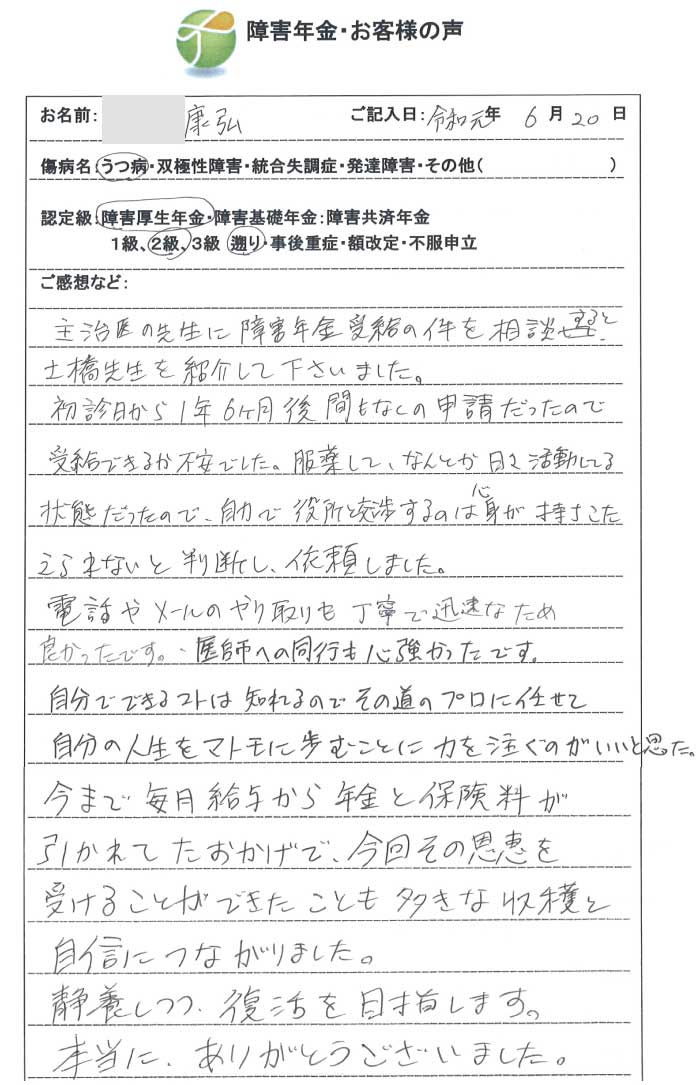 障害年金・お客様の声
お名前: 康弘 ご記入日: 令和元年 6月20日
傷病名:うつ病・双極性障害・統合失調症・発達障害・その他( )
認定級:障害厚生年金・障害基礎年金:障害共済年金
1級、2級、3級 遡り・事後重症・額改定・不服申立
ご感想など:
主治医の先生に障害年金受給の件を相談すると
土橋先生を紹介して下さいました。
初診日から1年6ヶ月後間もなくの申請だったので
受給できるか不安でした。服薬して、なんとか日々活動してる
状態だったので、自力で役所と交渉するのは心身が持ちこた
えられないと判断し、依頼しました。
電話やメールのやり取りも丁寧で迅速なため
良かったです。医師への同行も心強かったです。
自分でできるコトは知れるのでその道のプロに任せて
自分の人生をマトモに歩むことに力を注ぐのがいいと思った。
今まで毎月給与から年金と保険料が
引かれてたおかげで、今回その恩恵を
受けることができたことも多きな収穫と
自信につながりました。
静養しつつ、復活を目指します。
本当に、ありがとうございました。